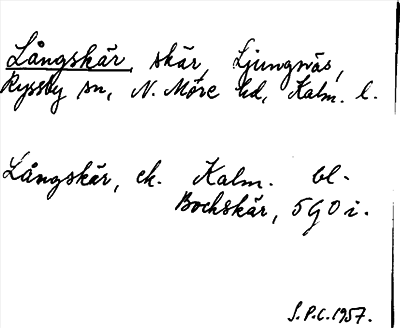 Långskär, skär, Ljungnäs,
Ryssby sn, N. Möre hd, Kalm. l.
Långskär, ek. Kalm. bl.
Bockskär, 5 G 0 i.
S.P.C. 1957.